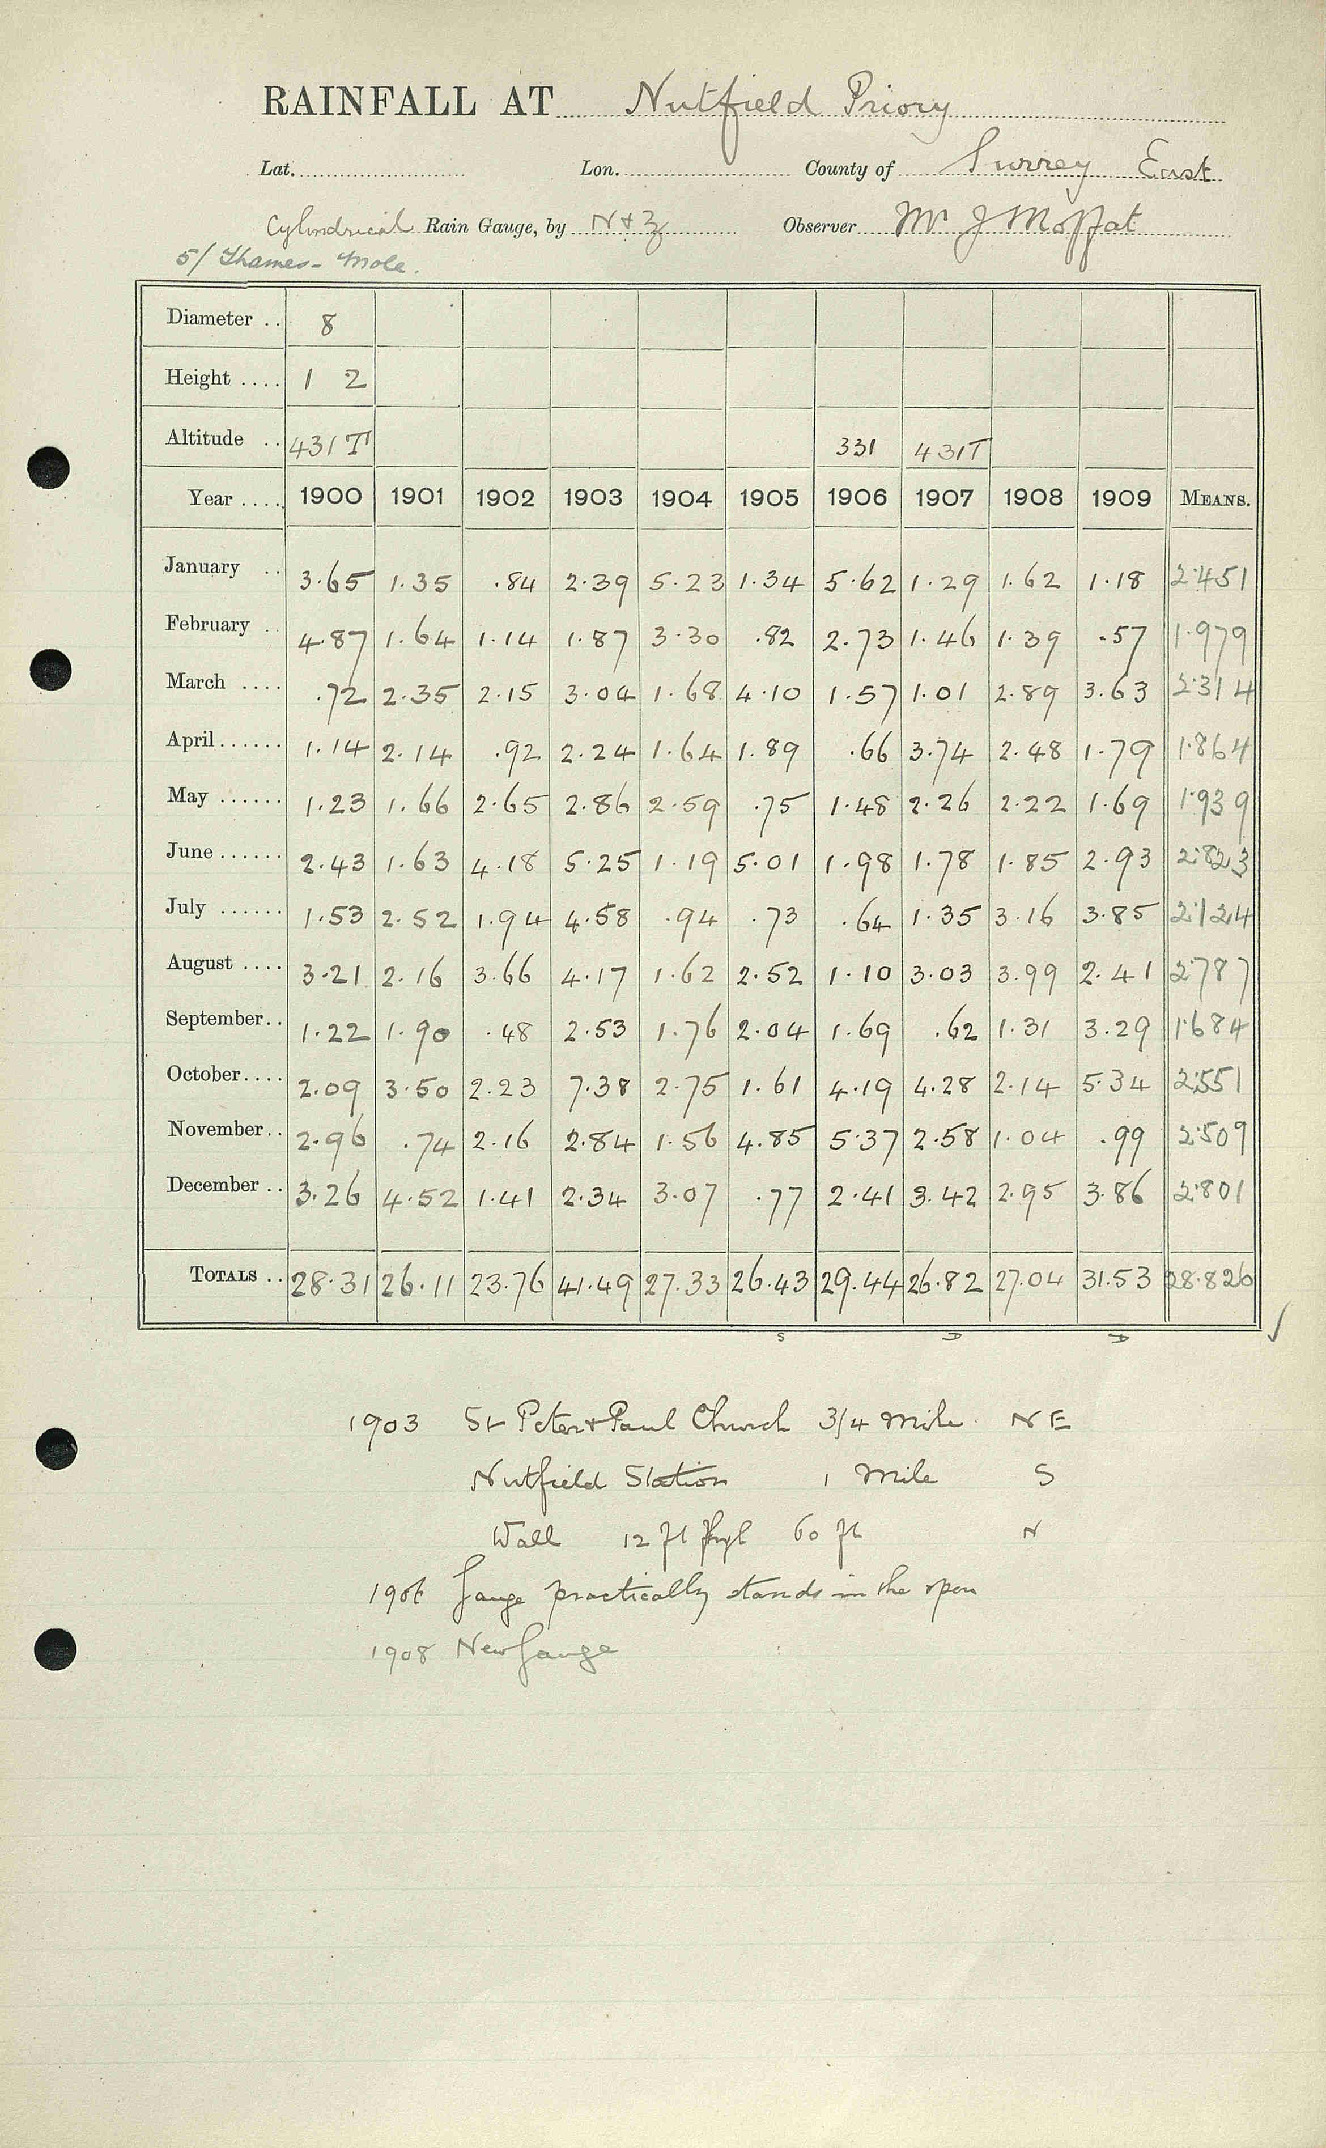 RAINFALL AT Nutfield Priory
Lat. Lon. County of Surrey East
Cylindrical Rain Gauge, by N & Z Observer Mr J Moffat
5/ Thames - Mole.
Diameter .. 8
Height .... 1 2
Altitude .. 431 T 331 431T
Year .... 1900 1901 1902 1903 1904 1905 1906 1907 1908 1909 MEANS.
January .. 3.65 1.35 .84 2.39 5.23 1.34 5.62 1.29 1.62 1.18 2.451
February .. 4.87 1.64 1.14 1.87 3.30 .82 2.73 1.46 1.39 .57 1.979
March .... .72 2.35 2.15 3.04 1.68 4.10 1.57 1.01 2.89 3.63 2.314
April...... 1.14 2.14 .92 2.24 1.64 1.89 .66 3.74 2.48 1.79 1.864
May ...... 1.23 1.66 2.65 2.86 2.59 .75 1.48 2.26 2.22 1.69 1.939
June ...... 2.43 1.63 4.18 5.25 1.19 5.01 1.98 1.78 1.85 2.93 2.823
July ...... 1.53 2.52 1.94 4.58 .94 .73 .64 1.35 3.16 3.85 2.124
August .... 3.21 2.16 3.66 4.17 1.62 2.52 1.10 3.03 3.99 2.41 2.787
September.. 1.22 1.90 .48 2.53 1.76 2.04 1.69 .62 1.31 3.29 1.684
October.... 2.09 3.50 2.23 7.38 2.75 1.61 4.19 4.28 2.14 5.34 2.551
November.. 2.96 .74 2.16 2.84 1.56 4.85 5.37 2.58 1.04 .99 2.509
December .. 3.26 4.52 1.41 2.34 3.07 .77 2.41 3.42 2.95 3.86 2.801
TOTALS .. 28.31 26.11 23.76 41.49 27.33 26.43 29.44 26.82 27.04 31.53 28.826
S D D
1903 St Peter & Paul Church 3/4 Mile N E
Nutfield Station 1 Mile S
Wall 12 ft high 60 ft N
1906 Gauge practically stands in the open
1908 New Gauge